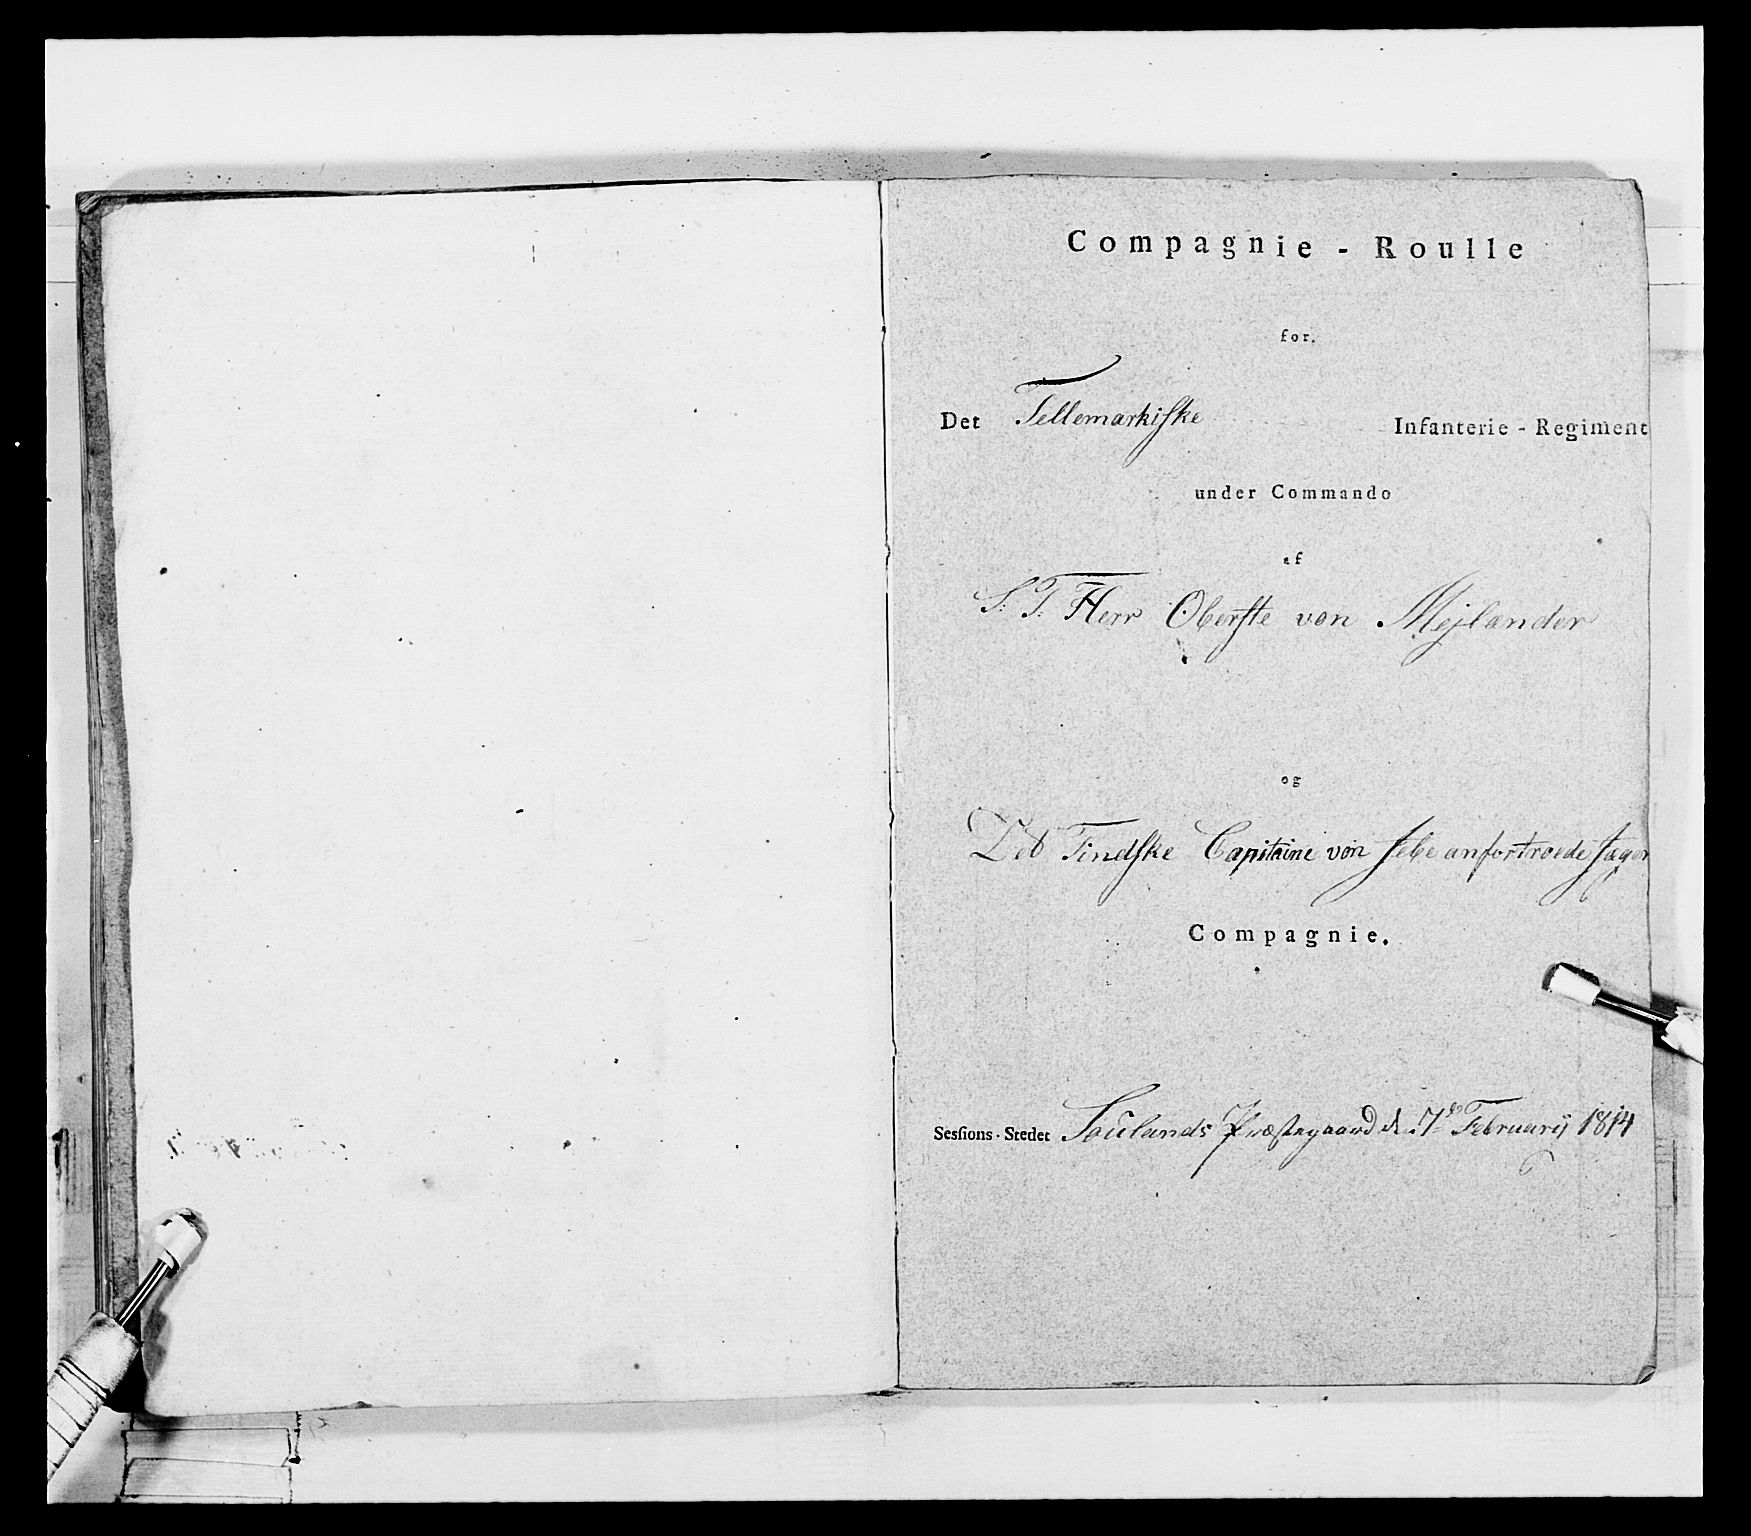 Compagnie - Roulle
for.
Det Tellemarkiske Infanterie - Regiment
under Commando
af
S: T. Herr Oberste von Mejlander
og
Det Tindske Capitaine von anfortroede Jæger
Compagnie.
Sessions-Stedet Soulands Præstegaard d. 7de Februarij 1814